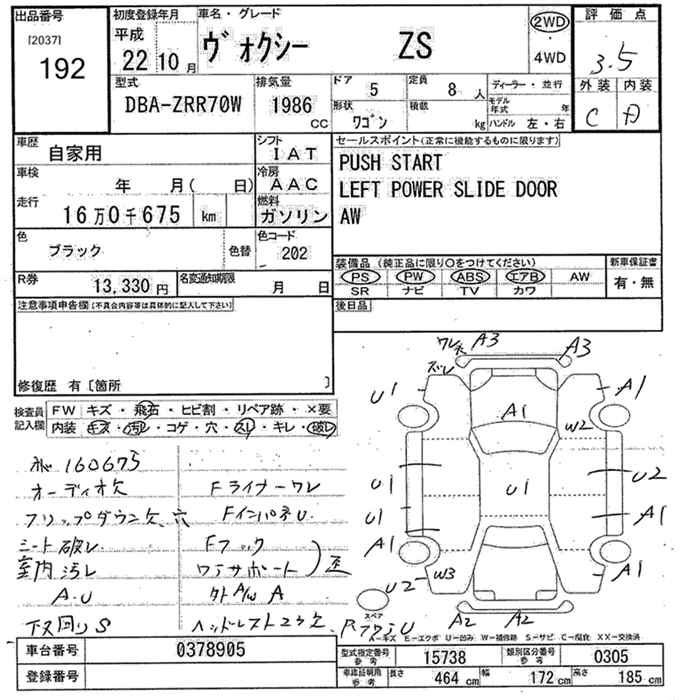 出品番号
[2037]
192
初度登録年月
平成
22年 10月
車名・グレード
ヴォクシー ZS
2WD
4WD
評価点
3.5
外装 内装
C D
型式
DBA-ZRR70W
排気量
1986 CC
ドア 5
定員 8 人
形状 ワゴン
積載 kg
ディーラー・並行
モデル年式 年
ハンドル 左・右
車歴
自家用
シフト
IAT
車検
年 月( 日)
冷房
AAC
走行
16万0千675 km
燃料
ガソリン
色
ブラック
色替
色コード
202
R券
13,330 円
名変通知期限
月 日
セールスポイント(正常に機能するものに限ります)
PUSH START
LEFT POWER SLIDE DOOR
AW
装備品 (純正品に限り○をつけてください)
PS PW ABS エアB AW
SR ナビ TV カワ
新車保証書
有・無
後日品
注意事項申告欄(不具合内容等は具体的に記入して下さい)
修復歴 有〔箇所 〕
検査員記入欄
FW キズ・飛石・ヒビ割・リペア跡・×要
内装 キズ・汚レ・コゲ・穴・スレ・キレ・破レ
160675
オーディオ欠
フリップダウン欠、穴
シート破レ
室内汚レ
A・U
下廻りS
Fライナーワレ
FインパネU
Fフック
ワラサポート
歪
外A/W A
ヘッドレスト2ケ欠、
ワレ A3 A3
ズレ
U1 A1 A1
W2
U1 U1 U2
U1 A1
A1 W3 A1
U2
スペア
A2 A2
A-キズ E-エクボ U-凹み W-補修跡 S-サビ C-腐食 XX-交換済
車台番号 0378905
登録番号
型式指定番号 参考 15738
類別区分番号 参考 0305
車検証明用 参考 長さ 464 cm 幅 172 cm 高さ 185 cm